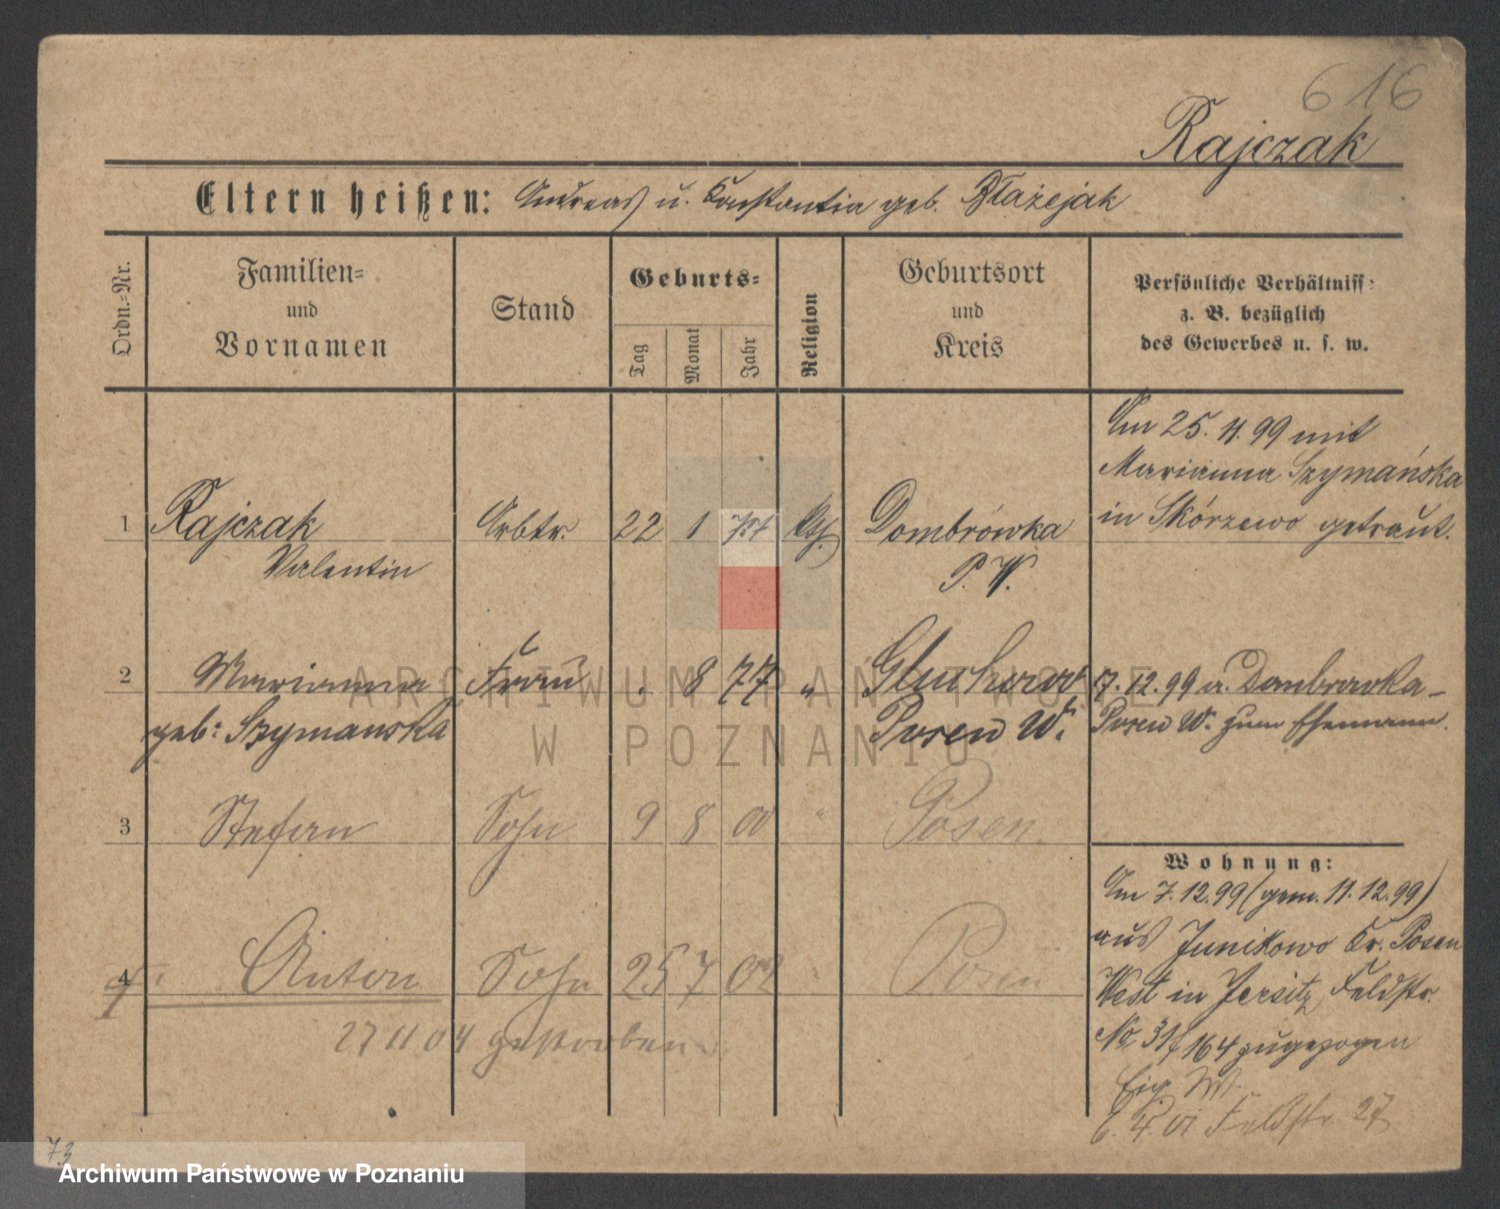 616
Rajczak
Eltern heißen: Andreas u. Konstantia geb. Błażejak
Ordn.=Nr.
Familien=
und
Vornamen
Stand
Geburts=
Tag
Monat
Jahr
Religion
Geburtsort
und
Kreis
Persönliche Verhältniss:
z. B. bezüglich
des Gewerbes u. s. w.
Am 25. 11. 99 mit
Marianna Szymańska
in Skórzewo getraut.
1 Rajczak Arbtr. 22 1 Dombrówka
Valentin P. W.
2 Marianna Frau . 8 77 " Gluchowo
geb: Szymanska Posen W.
7. 12. 99 a. Dombrowka-
Posen W. zum Ehemann.
3 Stefan Sohn 9 8 00 " Posen
4 Anton Sohn 25 7 02 " Posen
27 11 04 gestorben
Wohnung:
Am 7. 12. 99 (gem. 11. 12. 99)
aus Junikowo Kr. Posen
West in Jersitz, Feldstr.
No 31/164 zugezogen
Eig. W.
6. 4. 01 Feldstr. 27
73
ARCHIWUM PAŃSTWOWE
W POZNANIU
Archiwum Państwowe w Poznaniu